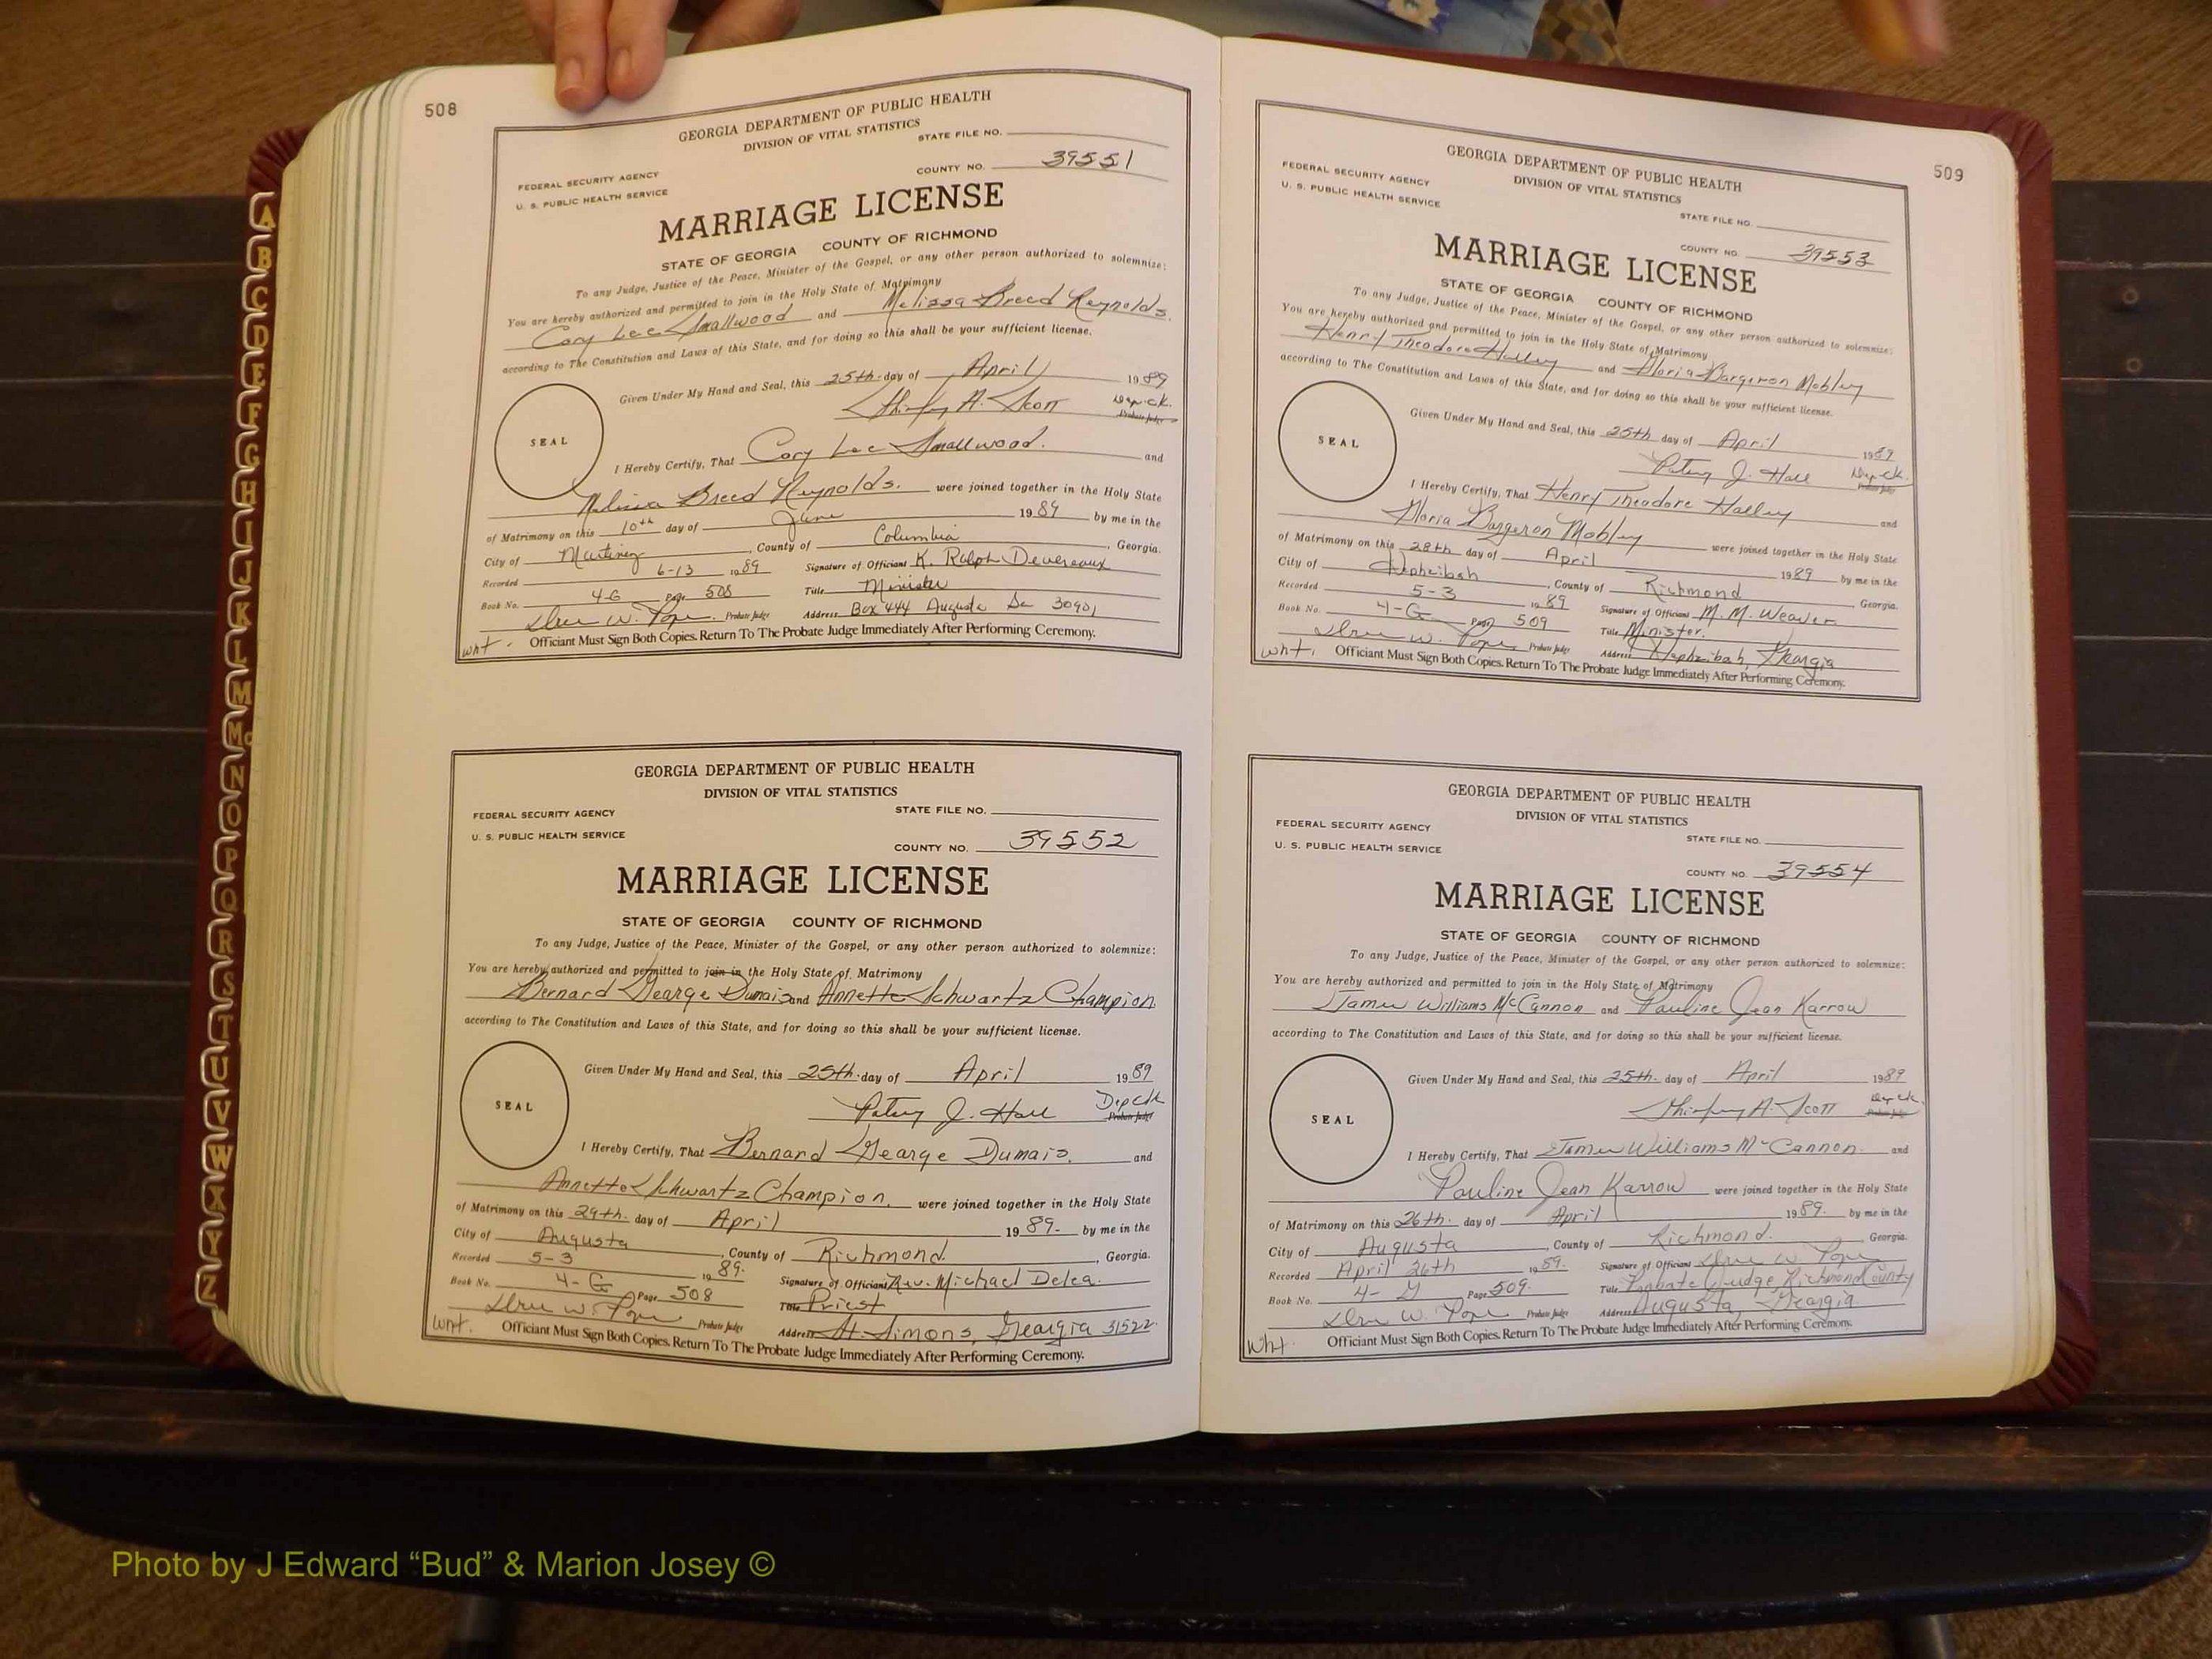 508
GEORGIA DEPARTMENT OF PUBLIC HEALTH
DIVISION OF VITAL STATISTICS
STATE FILE NO.
FEDERAL SECURITY AGENCY
COUNTY NO. 39551
U. S. PUBLIC HEALTH SERVICE
MARRIAGE LICENSE
STATE OF GEORGIA COUNTY OF RICHMOND
To any Judge, Justice of the Peace, Minister of the Gospel, or any other person authorized to solemnize:
You are hereby authorized and permitted to join in the Holy State of Matrimony
Cory Lee Smallwood and Melissa Breed Reynolds.
according to The Constitution and Laws of this State, and for doing so this shall be your sufficient license.
Given Under My Hand and Seal, this 25th day of April 1989
Shirley A. Scott Dep. Ck.
Probate Judge
SEAL
I Hereby Certify, That Cory Lee Smallwood. and
Melissa Breed Reynolds. were joined together in the Holy State
of Matrimony on this 10th day of June 1989 by me in the
City of Martinez, County of Columbia, Georgia.
Recorded 6-13 1989 Signature of Officiant K. Ralph Devereaux
Book No. 4-G Page 508 Title Minister
Probate Judge Address Box 444 Augusta Ga 30901
wht. Officiant Must Sign Both Copies. Return To The Probate Judge Immediately After Performing Ceremony.
GEORGIA DEPARTMENT OF PUBLIC HEALTH
DIVISION OF VITAL STATISTICS
FEDERAL SECURITY AGENCY STATE FILE NO.
U. S. PUBLIC HEALTH SERVICE
COUNTY NO. 39552
MARRIAGE LICENSE
STATE OF GEORGIA COUNTY OF RICHMOND
To any Judge, Justice of the Peace, Minister of the Gospel, or any other person authorized to solemnize:
You are hereby authorized and permitted to join in the Holy State of Matrimony
Bernard George Dumais and Annette Schwartz Champion
according to The Constitution and Laws of this State, and for doing so this shall be your sufficient license.
Given Under My Hand and Seal, this 25th. day of April 1989
Patsy J. Hall Dep Clk
Probate Judge
SEAL
I Hereby Certify, That Bernard George Dumais. and
Annette Schwartz Champion. were joined together in the Holy State
of Matrimony on this 29th. day of April 1989. by me in the
City of Augusta, County of Richmond, Georgia.
Recorded 5-3 1989. Signature of Officiant Rev. Michael Delea.
Book No. 4-G Page 508 Title Priest
Probate Judge Address St. Simons, Georgia 31522.
wht. Officiant Must Sign Both Copies. Return To The Probate Judge Immediately After Performing Ceremony.
509
GEORGIA DEPARTMENT OF PUBLIC HEALTH
DIVISION OF VITAL STATISTICS
FEDERAL SECURITY AGENCY
U. S. PUBLIC HEALTH SERVICE
STATE FILE NO.
COUNTY NO. 39553
MARRIAGE LICENSE
STATE OF GEORGIA COUNTY OF RICHMOND
To any Judge, Justice of the Peace, Minister of the Gospel, or any other person authorized to solemnize:
You are hereby authorized and permitted to join in the Holy State of Matrimony
Henry Theodore Halley and Gloria Bargeron Mobley
according to The Constitution and Laws of this State, and for doing so this shall be your sufficient license.
Given Under My Hand and Seal, this 25th day of April 1989
Patsy J. Hall Dep Clk.
Probate Judge
SEAL
I Hereby Certify, That Henry Theodore Halley and
Gloria Bargeron Mobley were joined together in the Holy State
of Matrimony on this 28th day of April 1989 by me in the
City of Hephzibah, County of Richmond Georgia.
Recorded 5-3 1989 Signature of Officiant M. M. Weaver
Book No. 4-G Page 509 Title Minister.
Probate Judge Address Hephzibah, Georgia
wht. Officiant Must Sign Both Copies. Return To The Probate Judge Immediately After Performing Ceremony.
GEORGIA DEPARTMENT OF PUBLIC HEALTH
DIVISION OF VITAL STATISTICS
FEDERAL SECURITY AGENCY
STATE FILE NO.
U. S. PUBLIC HEALTH SERVICE
COUNTY NO. 39554
MARRIAGE LICENSE
STATE OF GEORGIA COUNTY OF RICHMOND
To any Judge, Justice of the Peace, Minister of the Gospel, or any other person authorized to solemnize:
You are hereby authorized and permitted to join in the Holy State of Matrimony
James Williams McCannon and Pauline Jean Karrow
according to The Constitution and Laws of this State, and for doing so this shall be your sufficient license.
Given Under My Hand and Seal, this 25th. day of April 1989
Shirley A. Scott Dep Ck.
Probate Judge
SEAL
I Hereby Certify, That James Williams McCannon and
Pauline Jean Karrow were joined together in the Holy State
of Matrimony on this 26th. day of April 1989. by me in the
City of Augusta, County of Richmond. Georgia.
Recorded April 26th 1989. Signature of Officiant
Book No. 4-G Page 509. Title Probate Judge, Richmond County
Probate Judge Address Augusta, Georgia.
wht. Officiant Must Sign Both Copies. Return To The Probate Judge Immediately After Performing Ceremony.
A
B
C
D
E
F
G
H
I
J
K
L
M
Mc
N
O
P
Q
R
S
T
U
V
W
X
Y
Z
Photo by J Edward “Bud” & Marion Josey ©